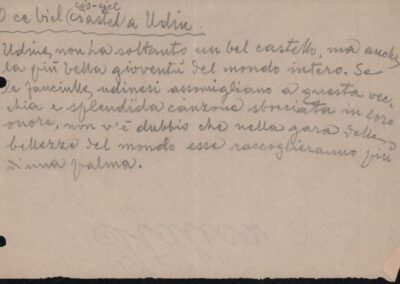 cjs-cjel
O ce biel (čjastel) a Udin.
Udine, non ha soltanto un bel castello, ma anche,
la più bella gioventù del mondo intero. Se
le fanciulle, udinesi assomigliano a questa vec-
chia e splendida canzone sbocciata in loro
onore, non v'è dubbio che nella gara della
bellezze del mondo esse raccoglieranno più
di una palma.